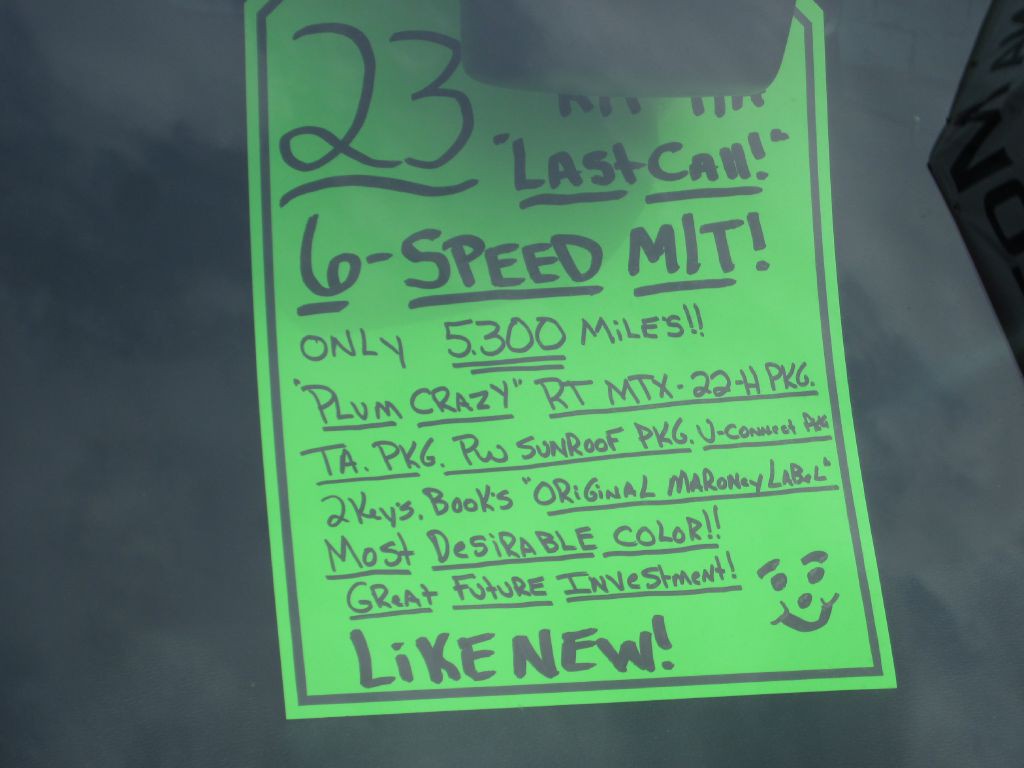 23
"Last Call!"
6-SPEED M/T!
ONLY 5.300 MiLE'S!!
"PLUM CRAZY" RT MTX-22-H PKG.
TA. PKG. PW SUNROOF PKG. U-Connect PKG
2 Key's. Book's "ORiGiNAL MARONey LABeL"
Most DeSiRABLE COLOR!!
GReat FutuRE INVeStmeNt!
LiKE NEW!